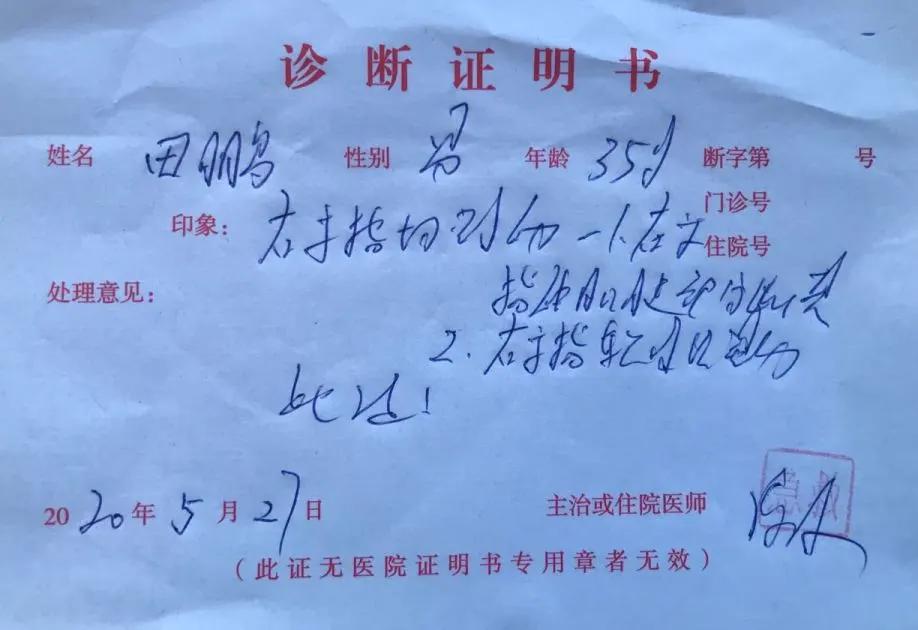 诊断证明书
姓名 田鹏鸟 性别 男 年龄 35岁 断字第 号
门诊号
印象: 右手指切割伤 1.右
住院号
处理意见: 指伸肌腱部分断裂
2.右手指软组织
此证!
2020年5月27日 主治或住院医师
(此证无医院证明书专用章者无效)